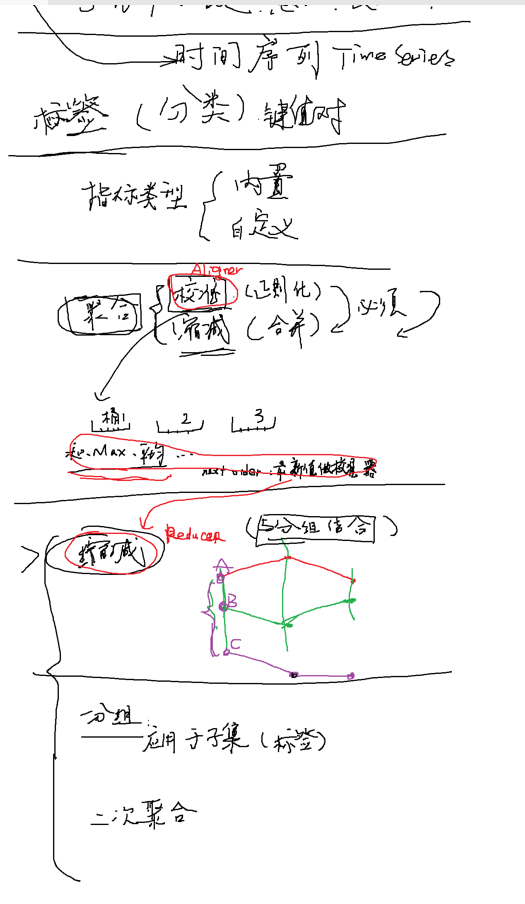 时间序列 Time Series
标签（分类）键值对
指标类型 { 内置
自定义
Aligner
聚合 { 校准（正则化） 必须
缩减（合并）
桶1 2 3
和、Max、平均 ...
next order：最新值做校准器
缩减 Reducer （与分组结合）
A
B
C
分组：
应用于子集（标签）
二次聚合